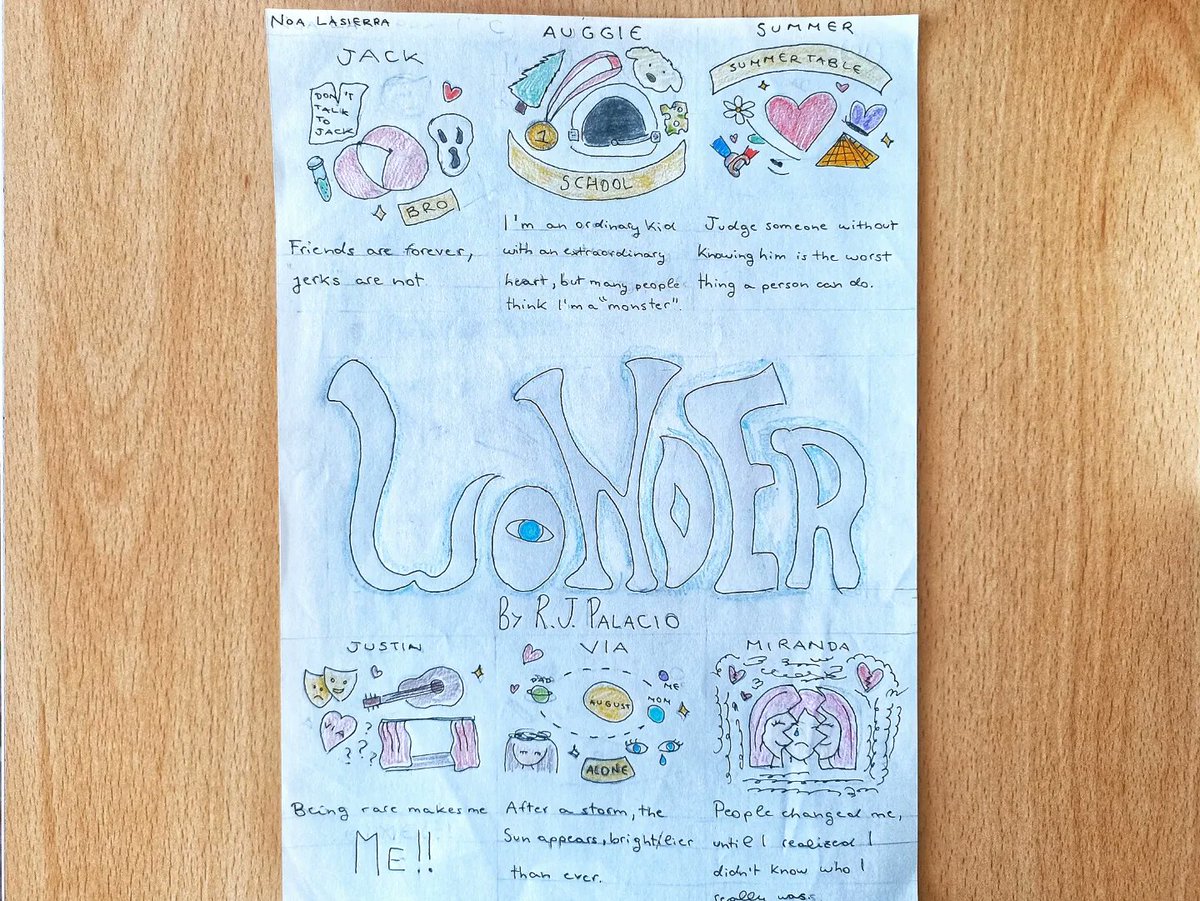 NOA LASIERRA
JACK
DON'T
TALK
TO
JACK
BRO
Friends are forever,
jerks are not
AUGGIE
1
SCHOOL
I'm an ordinary kid
with an extraordinary
heart, but many people
think I'm a "monster".
SUMMER
SUMMER TABLE
Judge someone without
Knowing him is the worst
thing a person can do.
WONDER
BY R.J. PALACIO
JUSTIN
? ? ? ?
Being rare makes me
ME!!
VIA
DAD
ME
AUGUST
MOM
ALONE
After a storm, the
Sun appears, bright/lier
than ever.
MIRANDA
People changed me,
until I realized I
didn't know who I
really was.